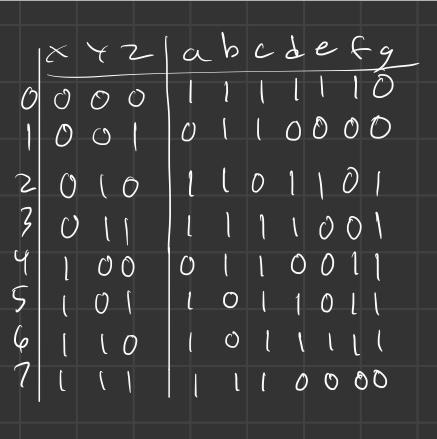 X Y Z a b c d e f g
0 0 0 0 1 1 1 1 1 1 0
1 0 0 1 0 1 1 0 0 0 0
2 0 1 0 1 1 0 1 1 0 1
3 0 1 1 1 1 1 1 0 0 1
4 1 0 0 0 1 1 0 0 1 1
5 1 0 1 1 0 1 1 0 1 1
6 1 1 0 1 0 1 1 1 1 1
7 1 1 1 1 1 1 0 0 0 0